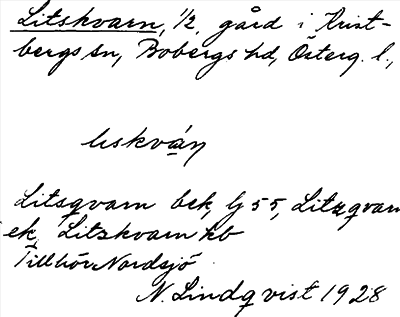 Litskvarn, 1/2, gård i Krist-
bergs sn, Bobergs hd, Österg. l.,
liskván
Litsqvarn bek, G 55, Litzqvarn
ek, Litzkvarn kb
Tillhör Nordsjö
N. Lindqvist 1928